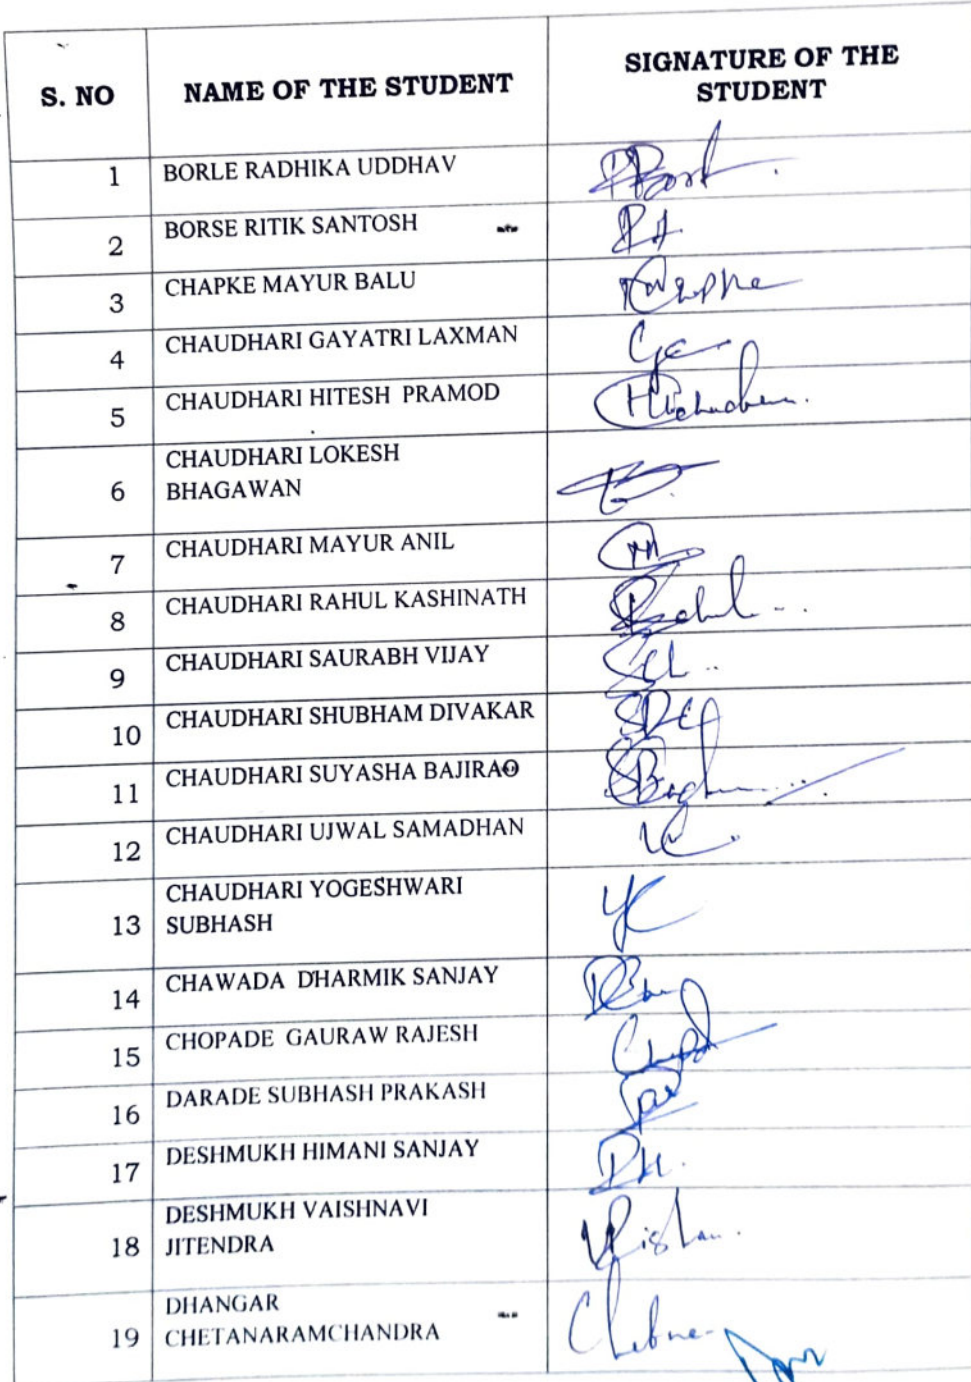 S. NO NAME OF THE STUDENT SIGNATURE OF THE STUDENT
1 BORLE RADHIKA UDDHAV
2 BORSE RITIK SANTOSH
3 CHAPKE MAYUR BALU
4 CHAUDHARI GAYATRI LAXMAN
5 CHAUDHARI HITESH PRAMOD
6 CHAUDHARI LOKESH
BHAGAWAN
7 CHAUDHARI MAYUR ANIL
8 CHAUDHARI RAHUL KASHINATH
9 CHAUDHARI SAURABH VIJAY
10 CHAUDHARI SHUBHAM DIVAKAR
11 CHAUDHARI SUYASHA BAJIRAO
12 CHAUDHARI UJWAL SAMADHAN
13 CHAUDHARI YOGESHWARI
SUBHASH
14 CHAWADA DHARMIK SANJAY
15 CHOPADE GAURAW RAJESH
16 DARADE SUBHASH PRAKASH
17 DESHMUKH HIMANI SANJAY
18 DESHMUKH VAISHNAVI
JITENDRA
19 DHANGAR
CHETANARAMCHANDRA